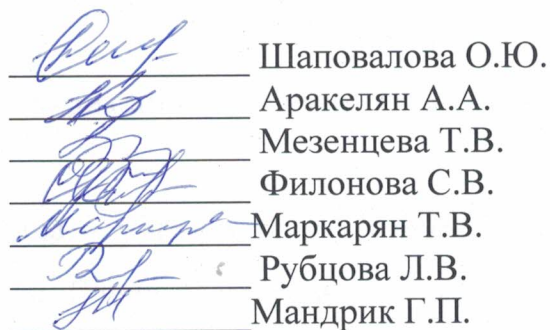 Шаповалова О.Ю.
Аракелян А.А.
Мезенцева Т.В.
Филонова С.В.
Маркарян Т.В.
Рубцова Л.В.
Мандрик Г.П.